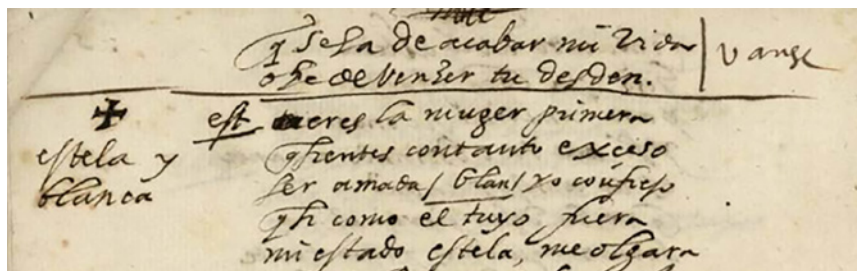 q̃ se ha de acabar mi vida
o he de Venzer tu desden.
Vanse
estela y
blanca
est eres la muger primera
q̃ sientes con tanto exçeso
ser amada / blan / yo confieso
q̃ si como el tuyo fuera
mi estado estela, me olgara